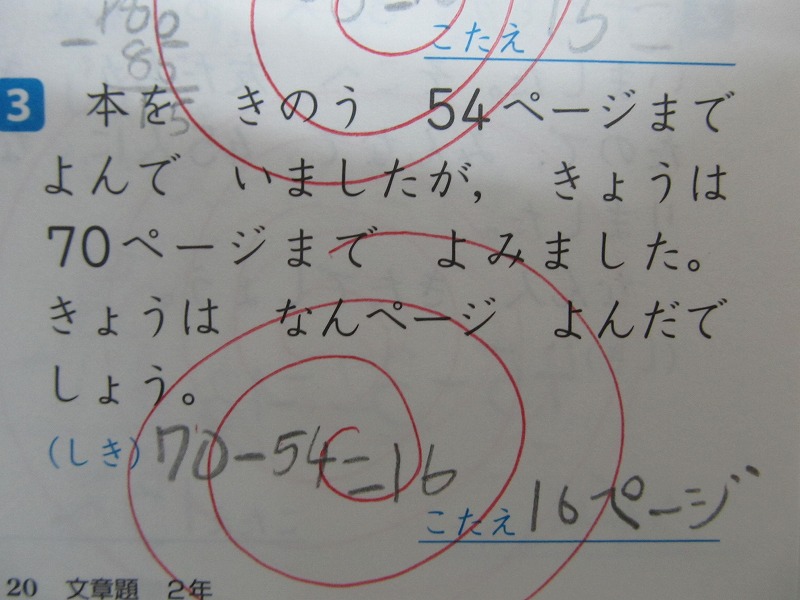 こたえ 15
85
15
3 本を きのう 54ページまで
よんで いましたが, きょうは
70ページまで よみました。
きょうは なんページ よんだで
しょう。
(しき) 70-54=16
こたえ 16ページ
20 文章題 2年